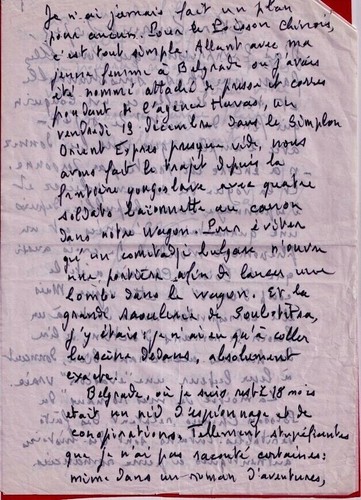 Je n'ai jamais fait un plan
pour aucun. Pour le Poisson Chinois,
c'est tout simple. Allant avec ma
jeune femme à Belgrade où j'avais
été nommé attaché de presse et corres
pondant de l'agence Havas, un
vendredi 13 décembre dans le Simplon
Orient Express presque vide, nous
avons fait le trajet depuis la
frontière yougoslave avec quatre
soldats baïonnette au canon
dans notre wagon. Pour éviter
qu'un comitadji bulgare n'ouvre
une portière afin de lancer une
bombe dans le wagon. Et la
grande saoulerie de
j'y étais : je n'ai eu qu'à coller
la scène dedans, absolument
exacte.
Belgrade, où je suis resté 18 mois
était un nid d'espionnage et de
conspirations. Tellement stupéfiantes
que je n'ai pas raconté certaines :
même dans un roman d'aventures,